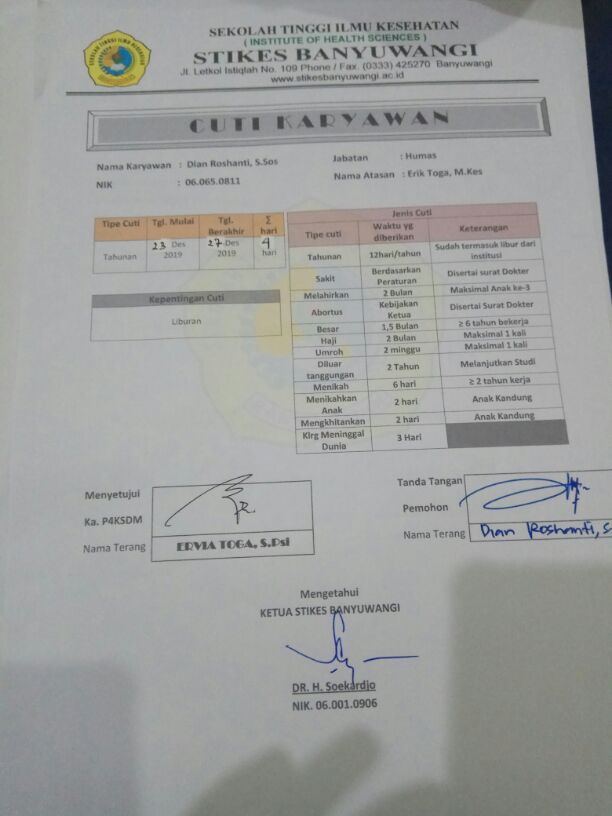 SEKOLAH TINGGI ILMU KESEHATAN
( INSTITUTE OF HEALTH SCIENCES )
STIKES BANYUWANGI
Jl. Letkol Istiqlah No. 109 Phone / Fax. (0333) 425270 Banyuwangi
www.stikesbanyuwangi.ac.id
CUTI KARYAWAN
Nama Karyawan : Dian Roshanti, S.Sos
NIK : 06.065.0811
Jabatan : Humas
Nama Atasan : Erik Toga, M.Kes
Tipe Cuti Tgl. Mulai Tgl. Berakhir Σ hari
Tahunan 23 Des 2019 27 Des 2019 4 hari
Kepentingan Cuti
Liburan
Jenis Cuti
Tipe cuti Waktu yg diberikan Keterangan
Tahunan 12hari/tahun Sudah termasuk libur dari institusi
Sakit Berdasarkan Peraturan Disertai surat Dokter
Melahirkan 2 Bulan Maksimal Anak ke-3
Abortus Kebijakan Ketua Disertai Surat Dokter
Besar 1,5 Bulan ≥ 6 tahun bekerja
Haji 2 Bulan Maksimal 1 kali
Umroh 2 minggu Maksimal 1 kali
Diluar tanggungan 2 Tahun Melanjutkan Studi
Menikah 6 hari ≥ 2 tahun kerja
Menikahkan Anak 2 hari Anak Kandung
Mengkhitankan 2 hari Anak Kandung
Klrg Meninggal Dunia 3 Hari
Menyetujui
Ka. P4KSDM
Nama Terang ERVIA TOGA, S.Psi
Tanda Tangan
Pemohon
Nama Terang Dian Roshanti, S
Mengetahui
KETUA STIKES BANYUWANGI
DR. H. Soekardjo
NIK. 06.001.0906